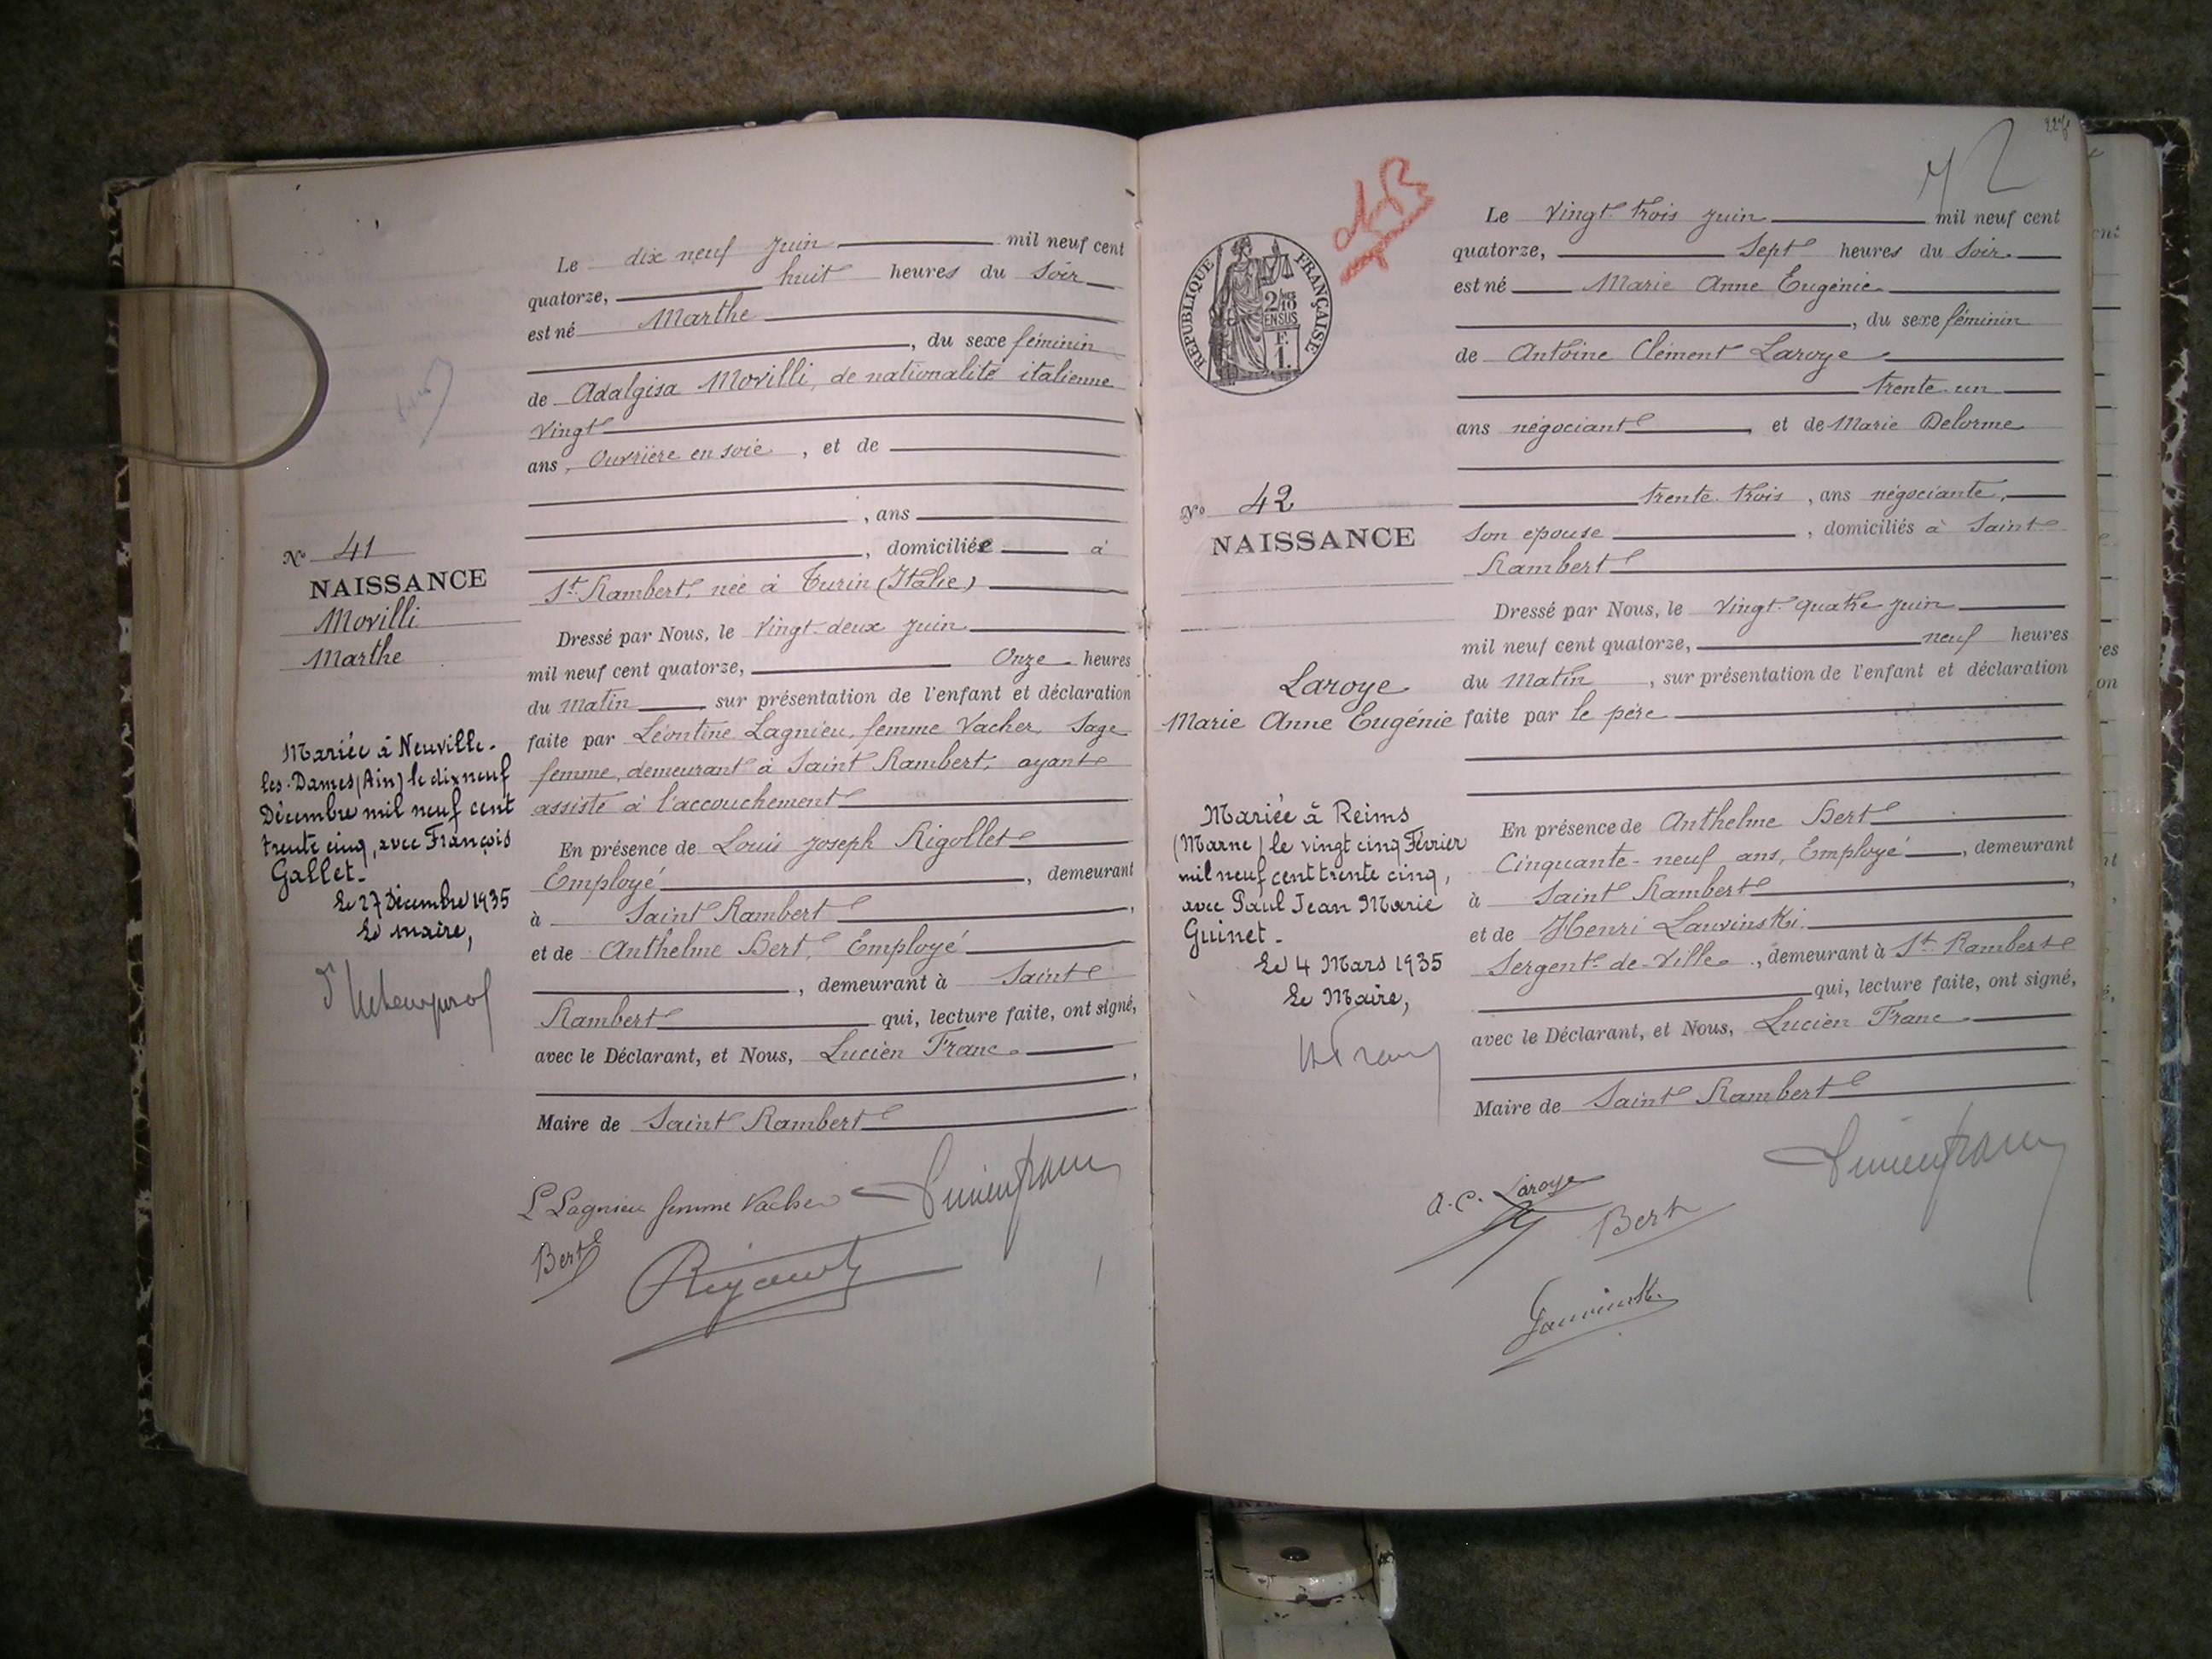 Le dix neuf Juin mil neuf cent
quatorze, huit heures du Soir
est né Marthe
, du sexe féminin
de Adalgisa Movilli, de nationalité italienne
Vingt
ans, Ouvrière en soie, et de
, ans
, domiciliée à
St Rambert, née à Turin (Italie)
Dressé par Nous, le Vingt-deux Juin
mil neuf cent quatorze, Onze heures
du Matin sur présentation de l'enfant et déclaration
faite par Léontine Lagnieu, femme Vacher, Sage
femme, demeurant à Saint Rambert, ayant
assisté à l'accouchement
En présence de Louis Joseph Rigollet
Employé, demeurant
à Saint Rambert,
et de Anthelme Bert, Employé
, demeurant à Saint
Rambert qui, lecture faite, ont signé,
avec le Déclarant, et Nous, Lucien Franc
,
Maire de Saint Rambert
L Lagnieu femme Vacher
Bert
No 41
NAISSANCE
Movilli
Marthe
Mariée à Neuville-
les-Dames (Ain) le dix neuf
Décembre mil neuf cent
trente cinq, avec François
Gallet-
Le 27 Décembre 1935
Le maire,
RÉPUBLIQUE FRANÇAISE
Le Vingt-trois Juin mil neuf cent
quatorze, Sept heures du Soir
est né Marie Anne Eugénie
, du sexe féminin
de Antoine Clément Laroye
trente-un
ans négociant et de Marie Delorme
trente-trois, ans négociante,
Son épouse, domiciliés à Saint
Rambert
Dressé par Nous, le Vingt-quatre Juin
mil neuf cent quatorze, neuf heures
du Matin, sur présentation de l'enfant et déclaration
faite par le père
En présence de Anthelme Bert
Cinquante-neuf ans, Employé, demeurant
à Saint Rambert,
et de Henri Lauvinski
Sergent-de-Ville, demeurant à St Rambert
qui, lecture faite, ont signé,
avec le Déclarant, et Nous, Lucien Franc
Maire de Saint Rambert
A. C. Laroye
Bert
No 42
NAISSANCE
Laroye
Marie Anne Eugénie
Mariée à Reims
(Marne) le vingt cinq Février
mil neuf cent trente cinq,
avec Paul Jean Marie
Guinet-
Le 4 Mars 1935
Le Maire,